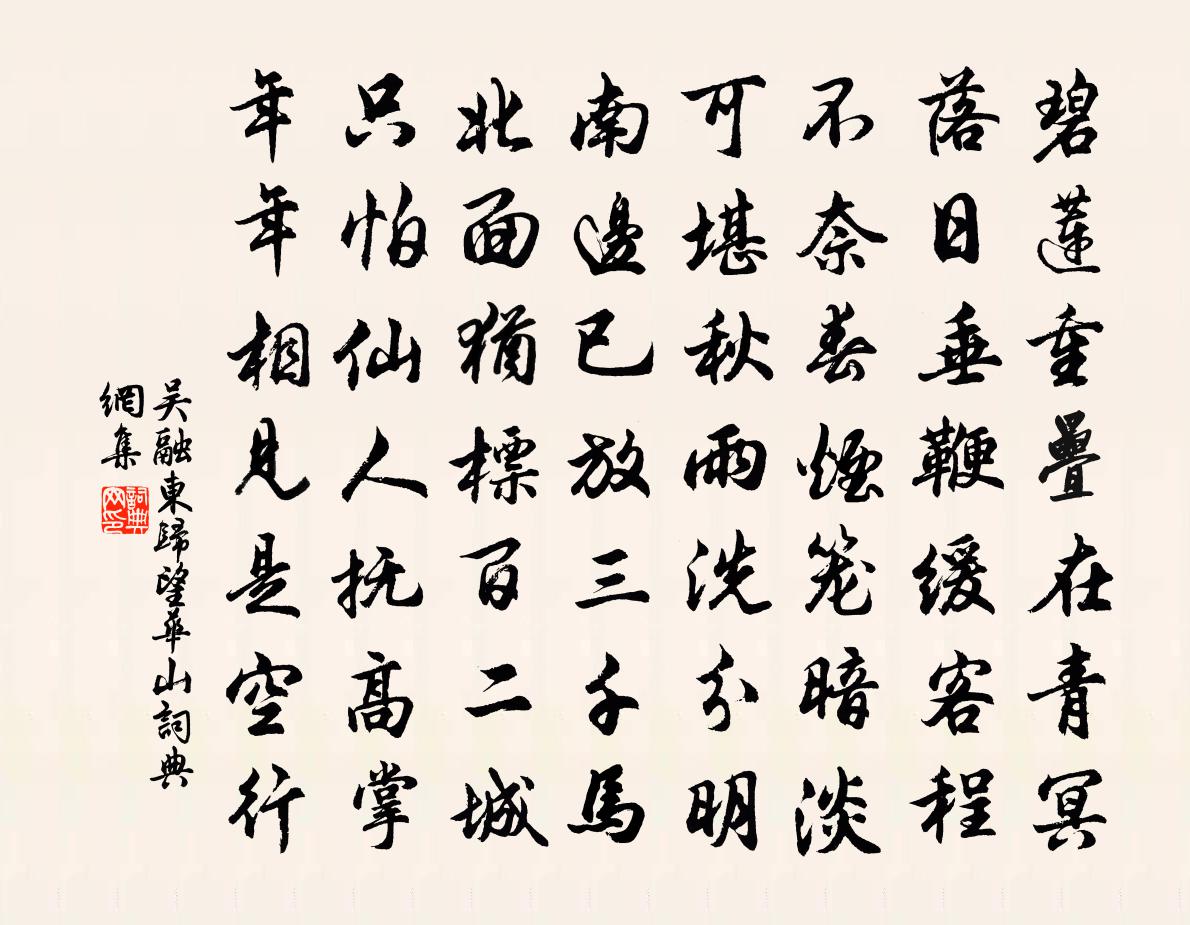 碧蓮重疊在青冥
落日垂鞭緩客程
不奈春煙笼暗淡
可堪秋雨洗分明
南邊已放三千馬
北面猶標百二城
只怕仙人抚高掌
年年相見是空行
吴融東歸望華山詞典
網集
詞典
网印